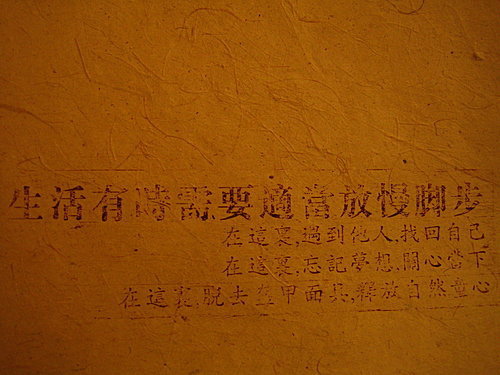 生活有時需要適當放慢腳步
在這裏,遇到他人,找回自己
在這裏,忘記夢想,關心當下
在這裏,脫去盔甲面具,釋放自然童心